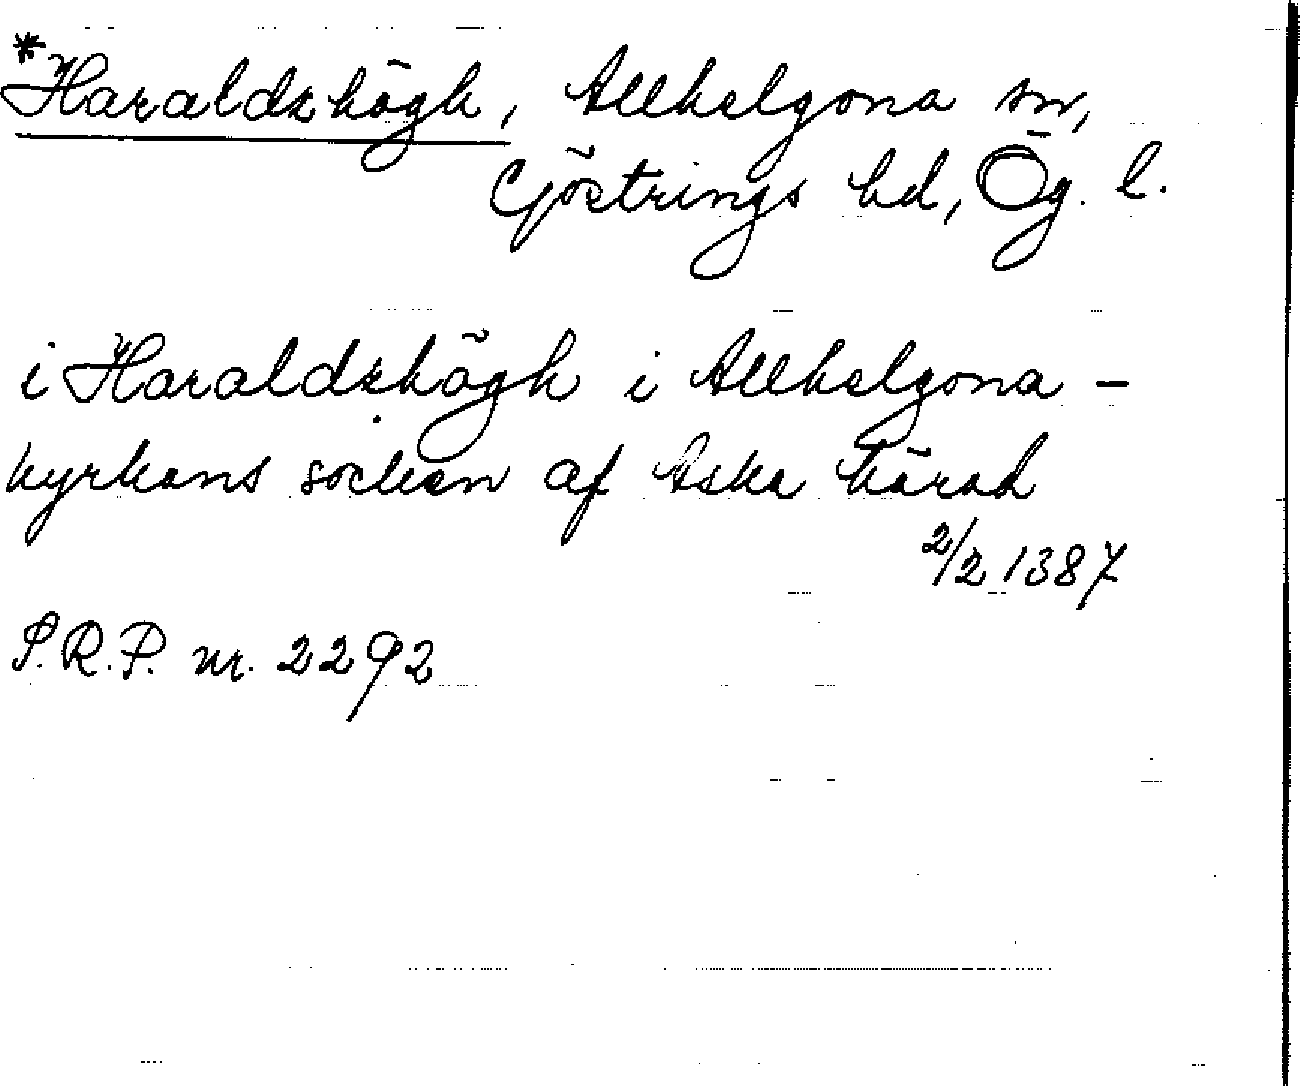 *Haraldzhögh, Allhelgona sn,
Göstrings hd, Ög. l.
i Haraldzhögh i Allhelgona-
kyrkans socken af Aska härad
2/2 1387
S.R.P. nr. 2292